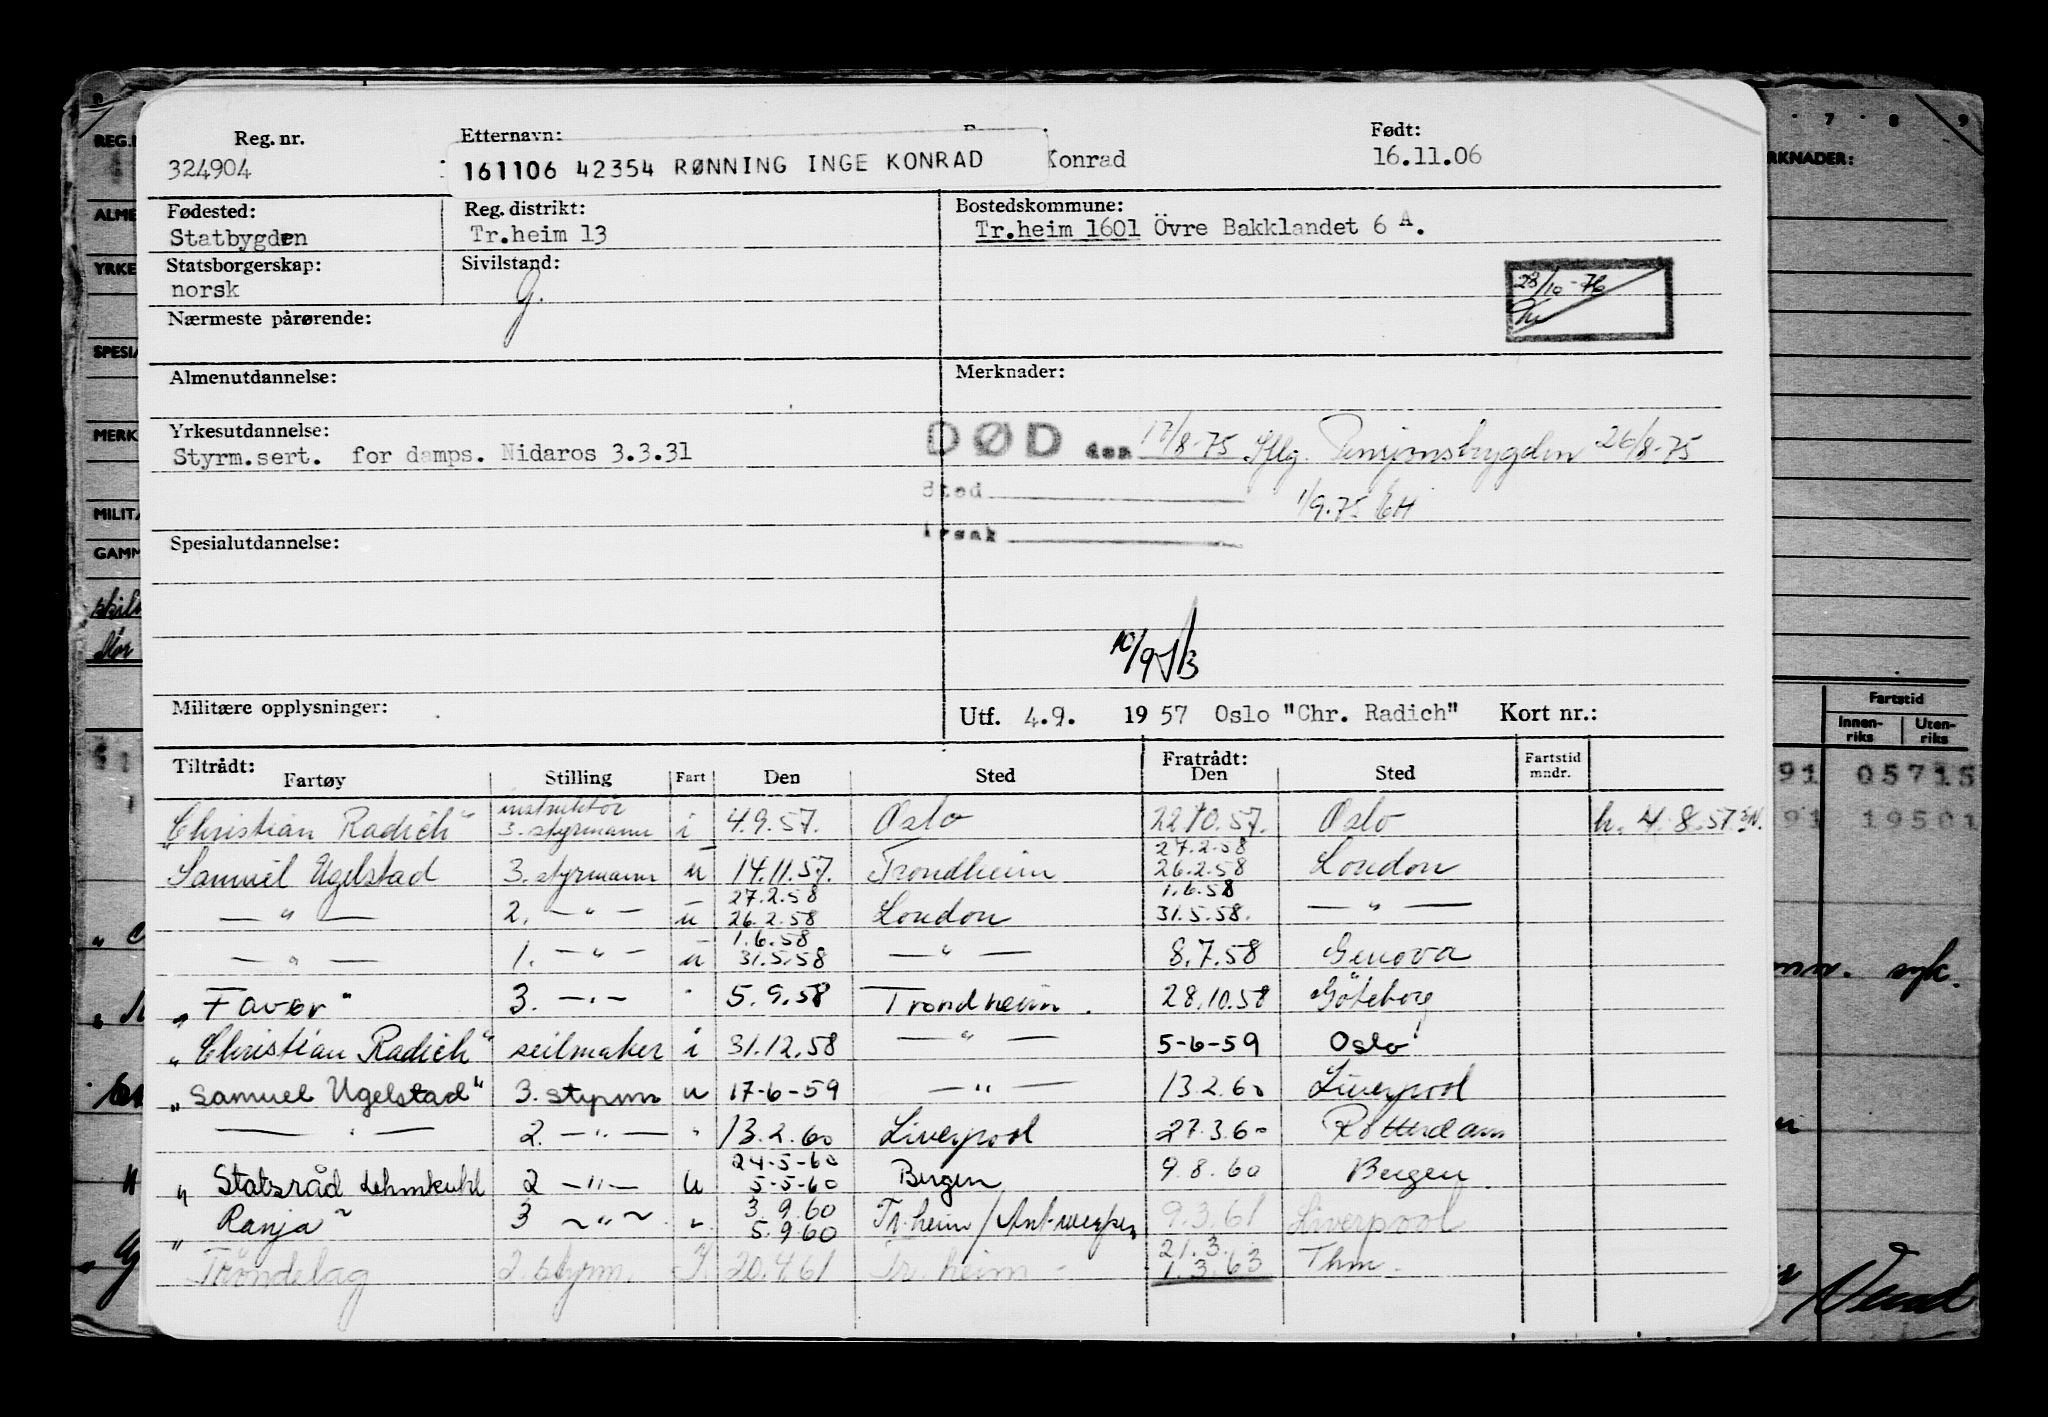 Reg. nr. Etternavn: Født:
324904 161106 42354 RØNNING INGE KONRAD Konrad 16.11.06
Fødested: Reg. distrikt: Bostedskommune:
Statbygden Tr.heim 13 Tr.heim 1601 Övre Bakklandet 6 A.
Statsborgerskap: Sivilstand:
norsk g.
28/10-76
Nærmeste pårørende:
Almenutdannelse: Merknader:
Yrkesutdannelse: DØD den 17/8-75 Iflg. Pensjonsbygden 26/8-75
Styrm.sert. for damps. Nidaros 3.3.31
Sted
1/9.75 EH
Spesialutdannelse: Årsak
10/9
Militære opplysninger: Utf. 4.9. 1957 Oslo "Chr. Radich" Kort nr.:
Tiltrådt: Fartøy Stilling Fart Den Sted Fratrådt: Den Sted Fartstid mndr.
"Christian Radich" instruktör 3. styrmann i 4.9.57. Oslo 22.10.57. Oslo h. 4.8.57
"Samuel Ugelstad 3. styrmann u 14.11.57. Trondheim 27.2.58 26.2.58 London
— " — 2. — " — u 27.2.58 26.2.58 London 1.6.58 31.5.58. — " —
— " — 1. — " — u 1.6.58 31.5.58 — " — 8.7.58 Genova
"Favor" 3. — " — " 5.9.58 Trondheim. 28.10.58 Göteborg
"Christian Radich" seilmaker i 31.12.58 — " — 5-6-59 Oslo
"Samuel Ugelstad" 3. styrmn u 17-6-59 — " — 13.2.60 Liverpool
— " — 2. — " — " 13.2.60 Liverpool 27.3.60 Rotterdam
" Statsråd Lehmkuhl 2 — " — u 24-5-60 5-5-60 Bergen 9.8.60 Bergen
" Ranja" 3 — " — " 3.9.60 5.9.60 Tr.heim/Antwerpen 9.3.61 Liverpool
Tröndelag 2. styrm. I. 20.4.61 Tr.heim - 21.3. 1.3.63 Thm.
REG.
ALME
YRKE
SPESIA
MERK
MILITÆ
GAMM
7 8 9
RKNADER:
Fartstid
Innen-riks Uten-riks
91 05715
91 19501
syk.